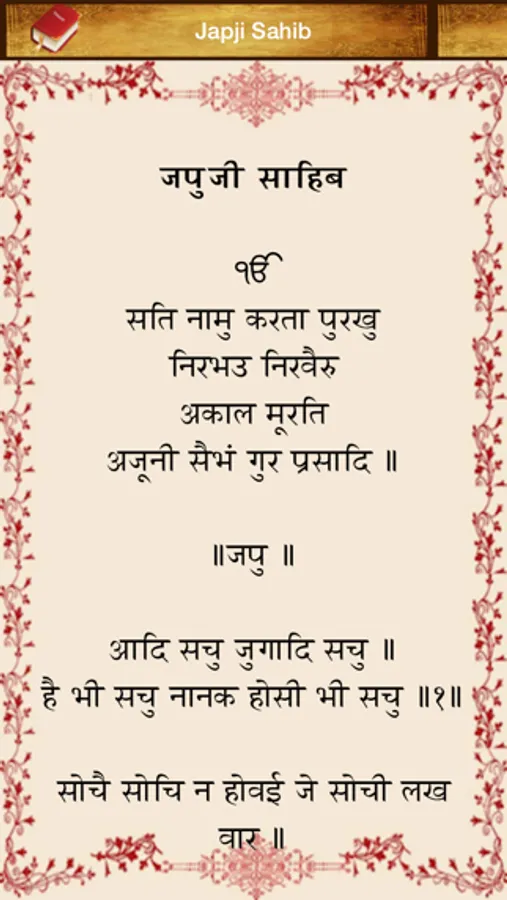 Japji Sahib
जपुजी साहिब
ੴ
सति नामु करता पुरखु
निरभउ निरवैरु
अकाल मूरति
अजूनी सैभं गुर प्रसादि ॥
॥जपु ॥
आदि सचु जुगादि सचु ॥
है भी सचु नानक होसी भी सचु ॥१॥
सोचै सोचि न होवई जे सोची लख
वार ॥